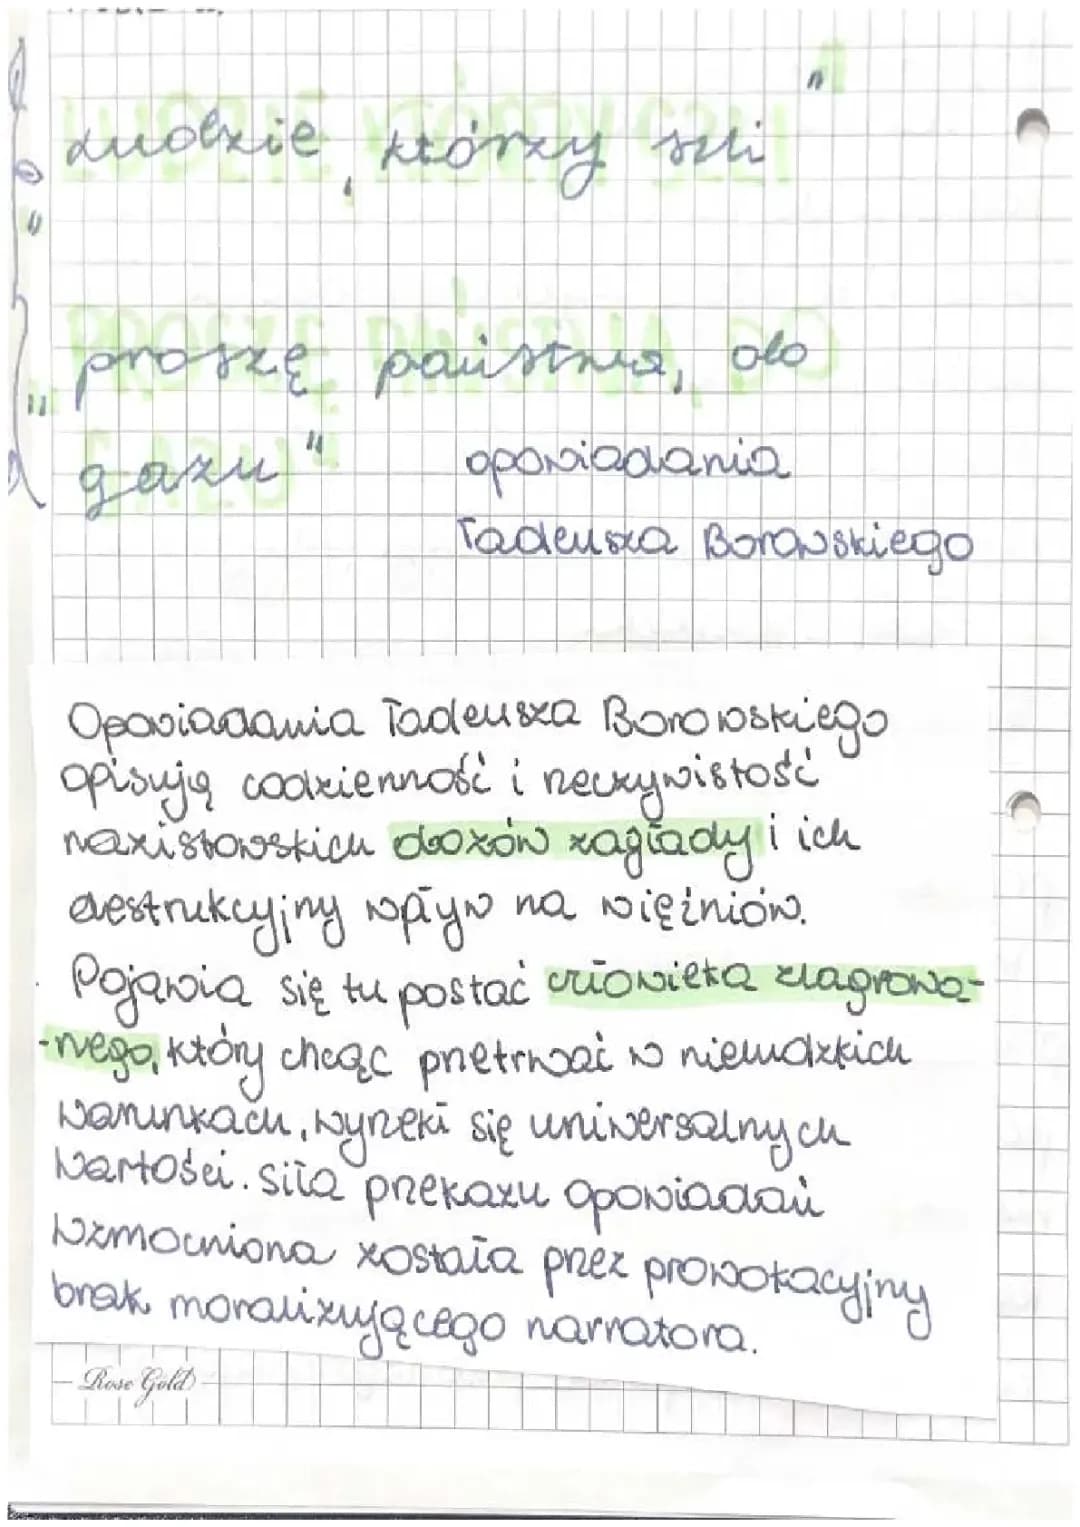 "Ludzie, którzy szli"
"proszę państwa, do
gazu"
opowiadania
Tadeusza Borowskiego
Opowiadania Tadeusza Borowskiego
opisują codzienność i rzeczywistość
nazistowskich obozów zagłady i ich
destrukcyjny wpływ na więźniów.
Pojawia się tu postać człowieka zlagrowa-
-nego, który chcąc przetrwać w nieludzkich
warunkach, wyrzekł się uniwersalnych
wartości. Siła przekazu opowiadań
wzmocniona została przez prowokacyjny
brak moralizującego narratora.
Rose Gold